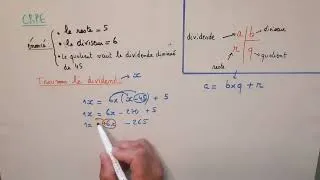 CRPE
énoncé
• le reste = 5
• le diviseur = 6
• Le quotient vaut le dividende diminué
de 45
Trouvons le dividende → x
1x = 6x(x-45) + 5
1x = 6x - 270 + 5
1x - 6x - 265
dividende
a
b
diviseur
r
q
quotient
reste
a = bxq + r